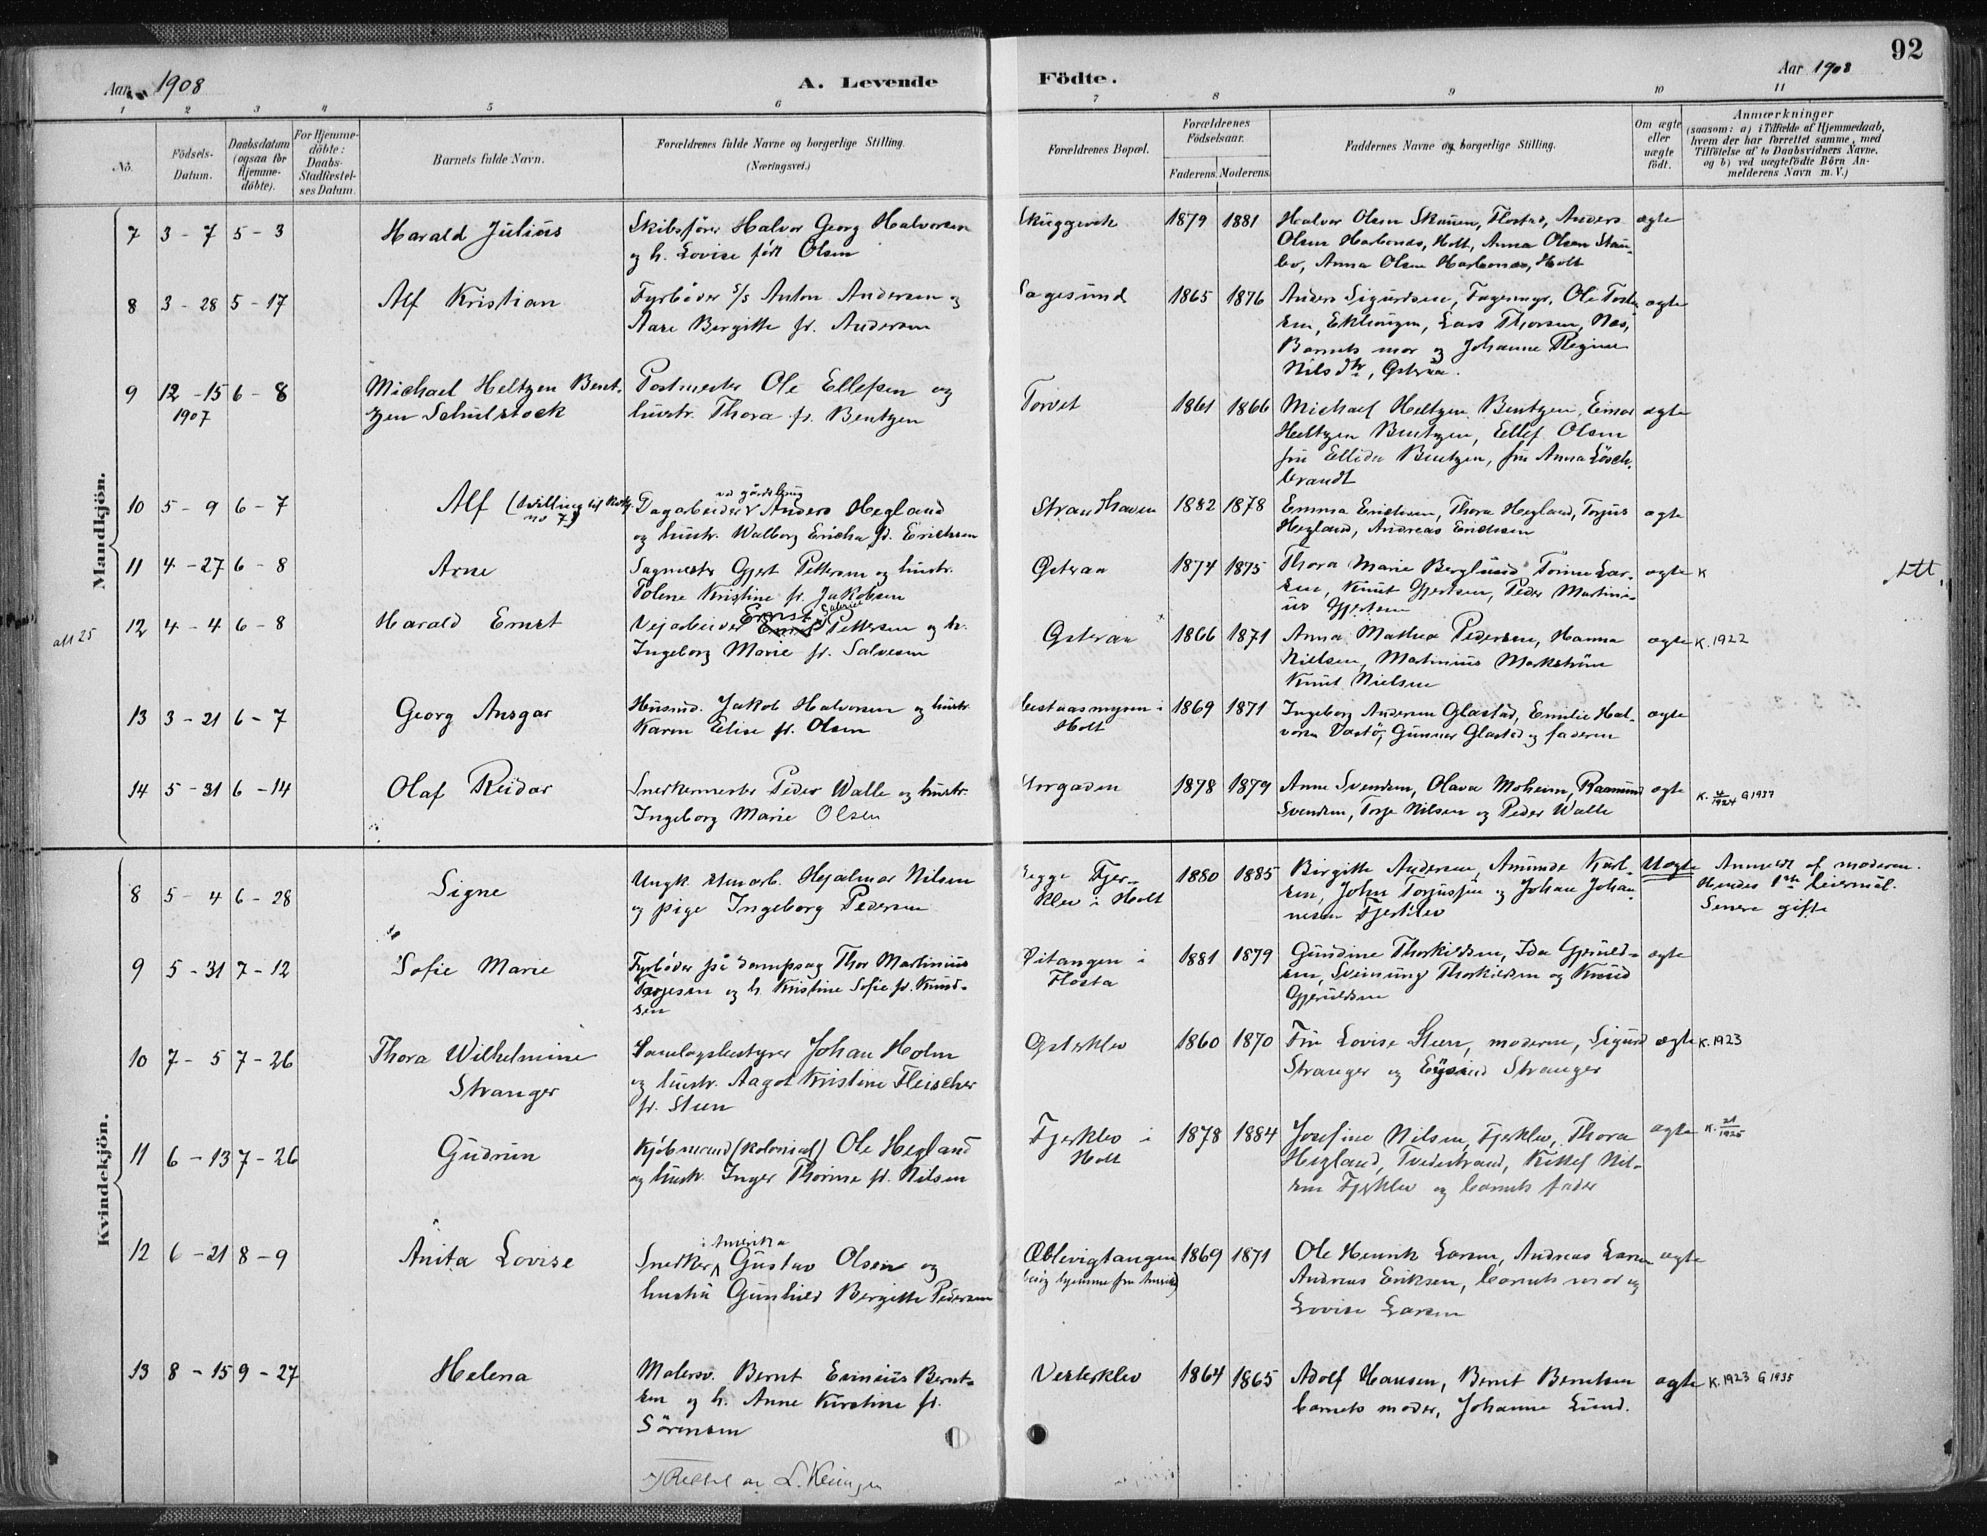 92
Aar 1908
A. Levende
Födte.
Aar 1908
1 2 3 4 5 6 7 8 9 10 11
No.
Födsels-
Datum.
Daabsdatum
(ogsaa for
Hjemme-
döbte).
For Hjemme-
döbte:
Daabs-
Stadfæstel-
ses Datum.
Barnets fulde Navn.
Forældrenes fulde Navne og borgerlige Stilling.
(Næringsvei.)
Forældrenes Bopæl.
Forældrenes
Födselsaar.
Faderens.
Moderens.
Faddernes Navne og borgerlige Stilling.
Om ægte
eller
uægte
födt.
Anmærkninger
(saasom: a) i Tilfælde af Hjemmedaab,
hvem der har forrettet samme, med
Tilföielse af to Daabsvidners Navne,
og b) ved uægtefödte Börn An-
melderens Navn m. V.)
Mandkjön.
7 3-7 5-3 Harald Julius
Skibsfører Halvor Georg Halvorsen
og h. Lovise født Olsen
Skuggevik 1879 1881
Halvor Olsen Skauen, Flostad, Anders
Olsen Harbones, Holt, Anna Olsen Skau-
bo, Anna Olsen Harbones, Holt
ægte
8 3-28 5-17 Alf Kristian
Fyrbøder s/s Anton Andersen og
Aase Bergitte f. Andersen
Sagesund 1865 1876
Anders Sigurdsen, Fagermyr, Ole
Lars Thorsen, Næs,
Barnets mor og Johanne Regine
Nilsdtr, Østeraa.
ægte
9 12-15 6-8 Michael Heltzen Bent-
1907
zen Schulstock
Postmester Ole Ellefsen og
hustr. Thora f. Bentzen
Torvet 1861 1866
Michael Heltzen Bentzen, Einar
Heltzen Bentzen, Ellef Olsen
fru Ellida Bentzen, fru Anna Løvek-
brandt
ægte
10 5-9 6-7 Alf (tvilling til
no 7)
Dagarbeider Anders Hegland
og hustr. Walborg Ericka f. Erichsen
Strandhaven 1882 1878
Emma Erichsen, Thora Hegland, Torjus
Hegland, Andreas Erichsen
ægte
11 4-27 6-8 Arne
Sagmester Gjert Pettersen og hustr.
Tolene Kristine f. Jakobsen
Østeraa 1874 1875
Thora Marie Berglund, Tomine Lar-
sen, Knut Gjertsen, Peder Martini-
us Gjertsen
ægte K
att.
att 25
12 4-4 6-8 Harald Ernst
Vejarbeider Ernst Pettersen og h.
Ingeborg Marie f. Salvesen
Østeraa 1866 1871
Anna Mathea Pedersen, Hanna
Nielsen, Martinius Markström
Knut Nielsen
ægte K. 1922
13 3-21 6-7 Georg Ansgar
Husmd. Jakob Halvorsen og hustr.
Karen Elise f. Olsen
Holt
1869 1871
Ingeborg Andersen Glastad, Emilie Hal-
vorsen Gunner Glastad og faderen
ægte
14 5-31 6-14 Olaf Reidar
Snedkermester Peder Walle og hustr.
Ingeborg Marie Olsen
1878 1879
Anne Svendsen, Olava Moheim, Raamund
Svendsen, Torje Nilsen og Peder Walle
ægte K. 4/1924 G 1937
Kvindekjön.
8 5-4 6-28 Signe
Ungk. Hjalmar Nilsen
og pige Ingeborg Pedersen
Begge Fjer-
klev i Holt
1880 1885
Birgitte Andersen, Amunde Karl-
sen, John Torjussen og Johan Johan-
nesen Fjerklev
Uægte
Anmeldt af moderen.
Hendes 1ste leiermål.
Senere gifte
9 5-31 7-12 Sofie Marie
Fyrbøder på dampsag Thor Martinius
Torjesen og h. Kristine Sofie f. Knud-
sen
Østangen i
Flosta
1881 1879
Gundine Thorkildsen, Ida Gjeruld-
sen, Sveinung Thorkildsen og Knud
Gjeruldsen
ægte
10 7-5 7-26 Thora Wilhelmine
Stranger
Samlagsbestyrer Johan Holm
og hustr. Aagot Kristine Fleischer
f. Steen
Østerklev 1860 1870
Fru Lovise Steen, moderen, Sigurd
Stranger og Eyvind Stranger
ægte K. 1923
11 6-13 7-26 Gudrun
Kjøbmand (kolonial) Ole Hegland
og hustr. Inger Thorine f. Nilsen
Fjerklev i
Holt
1878 1884
Josefine Nilsen, Fjerklev, Thora
Hegland, Tvedestrand, Kittel Nil-
sen Fjerklev og barnets fader
ægte K. 21/1925
12 6-21 8-9 Anita Lovise
i Amerika
Snedker Gustav Olsen og
hustru Gunhild Bergitte Pedersen
Øblevigtangen
hjemme fra
1869 1871
Ole Henrik Larsen, Andreas Larsen
Andreas Eriksen, barnets mor og
Lovise Larsen
ægte
13 8-15 9-27 Helena
Malersv. Bernt Evinius Bernt-
sen og h. Anne Kirstine f.
Sørensen
Vesterklev 1864 1865
Adolf Hansen, Bernt Berntsen
barnets moder, Johanne Lund.
ægte K. 1923 G 1935
Rettet av L.